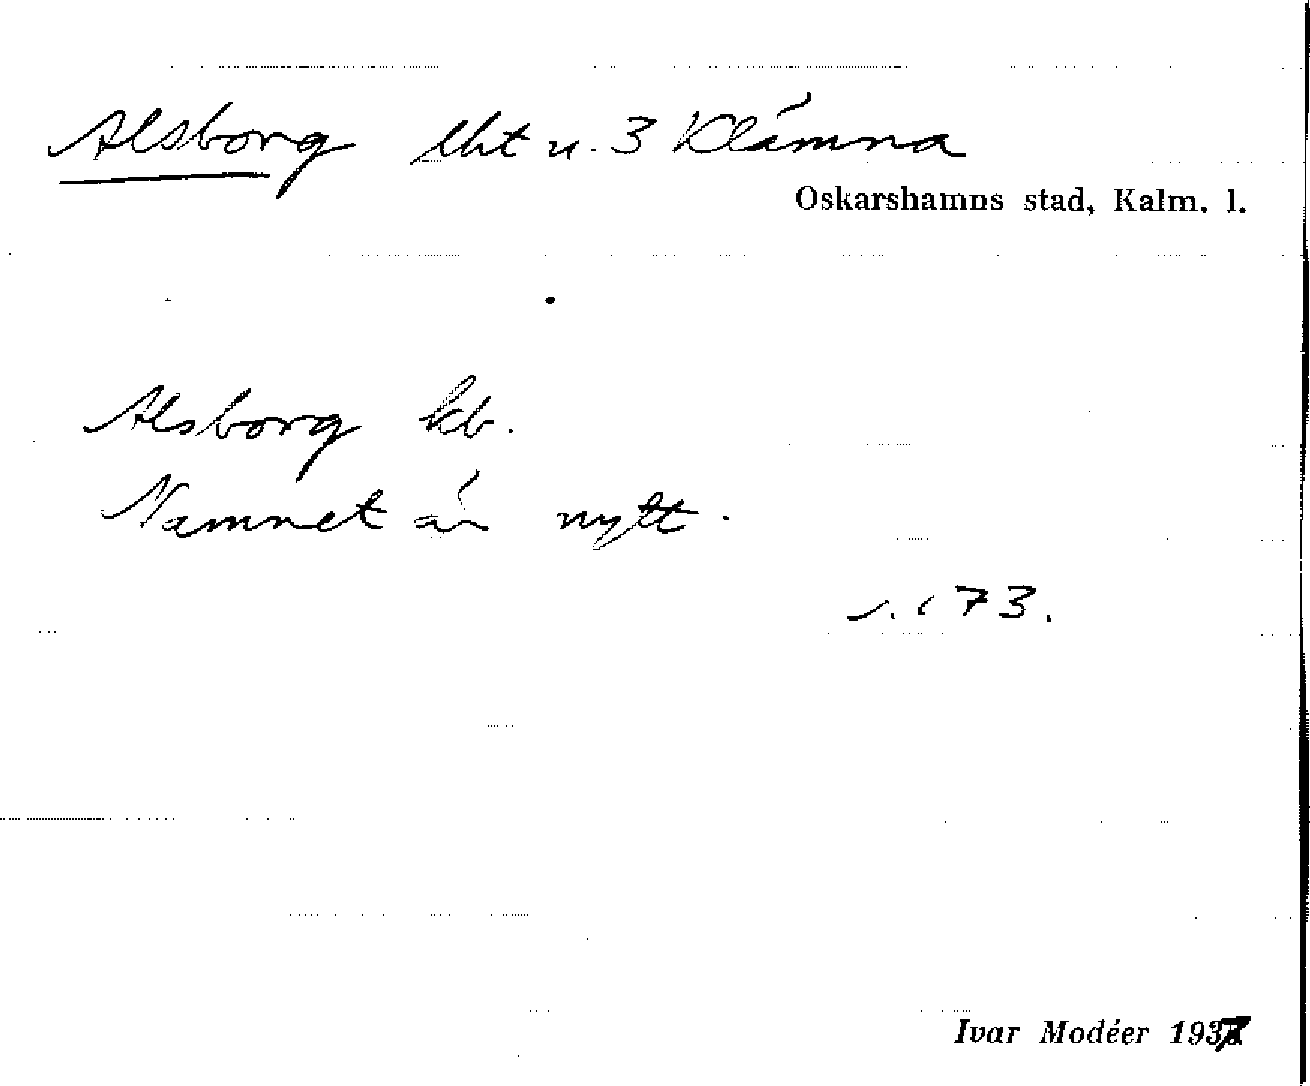 Alsborg lht u. 3 Klämna
Oskarshamns stad, Kalm. l.
Alsborg kb.
Namnet är nytt.
s. 173.
Ivar Modéer 1937